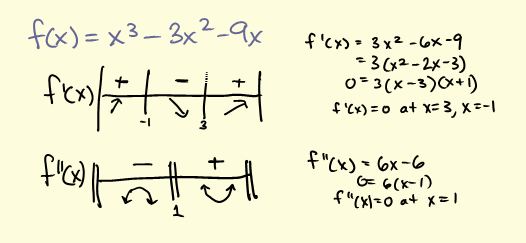 f(x) = x³ – 3x² – 9x
f'(x) + – +
-1 3
f''(x) – +
1
f'(x) = 3x² – 6x – 9
= 3(x² – 2x – 3)
0 = 3(x – 3)(x + 1)
f'(x) = 0 at x = 3, x = -1
f''(x) = 6x – 6
0 = 6(x – 1)
f''(x) = 0 at x = 1